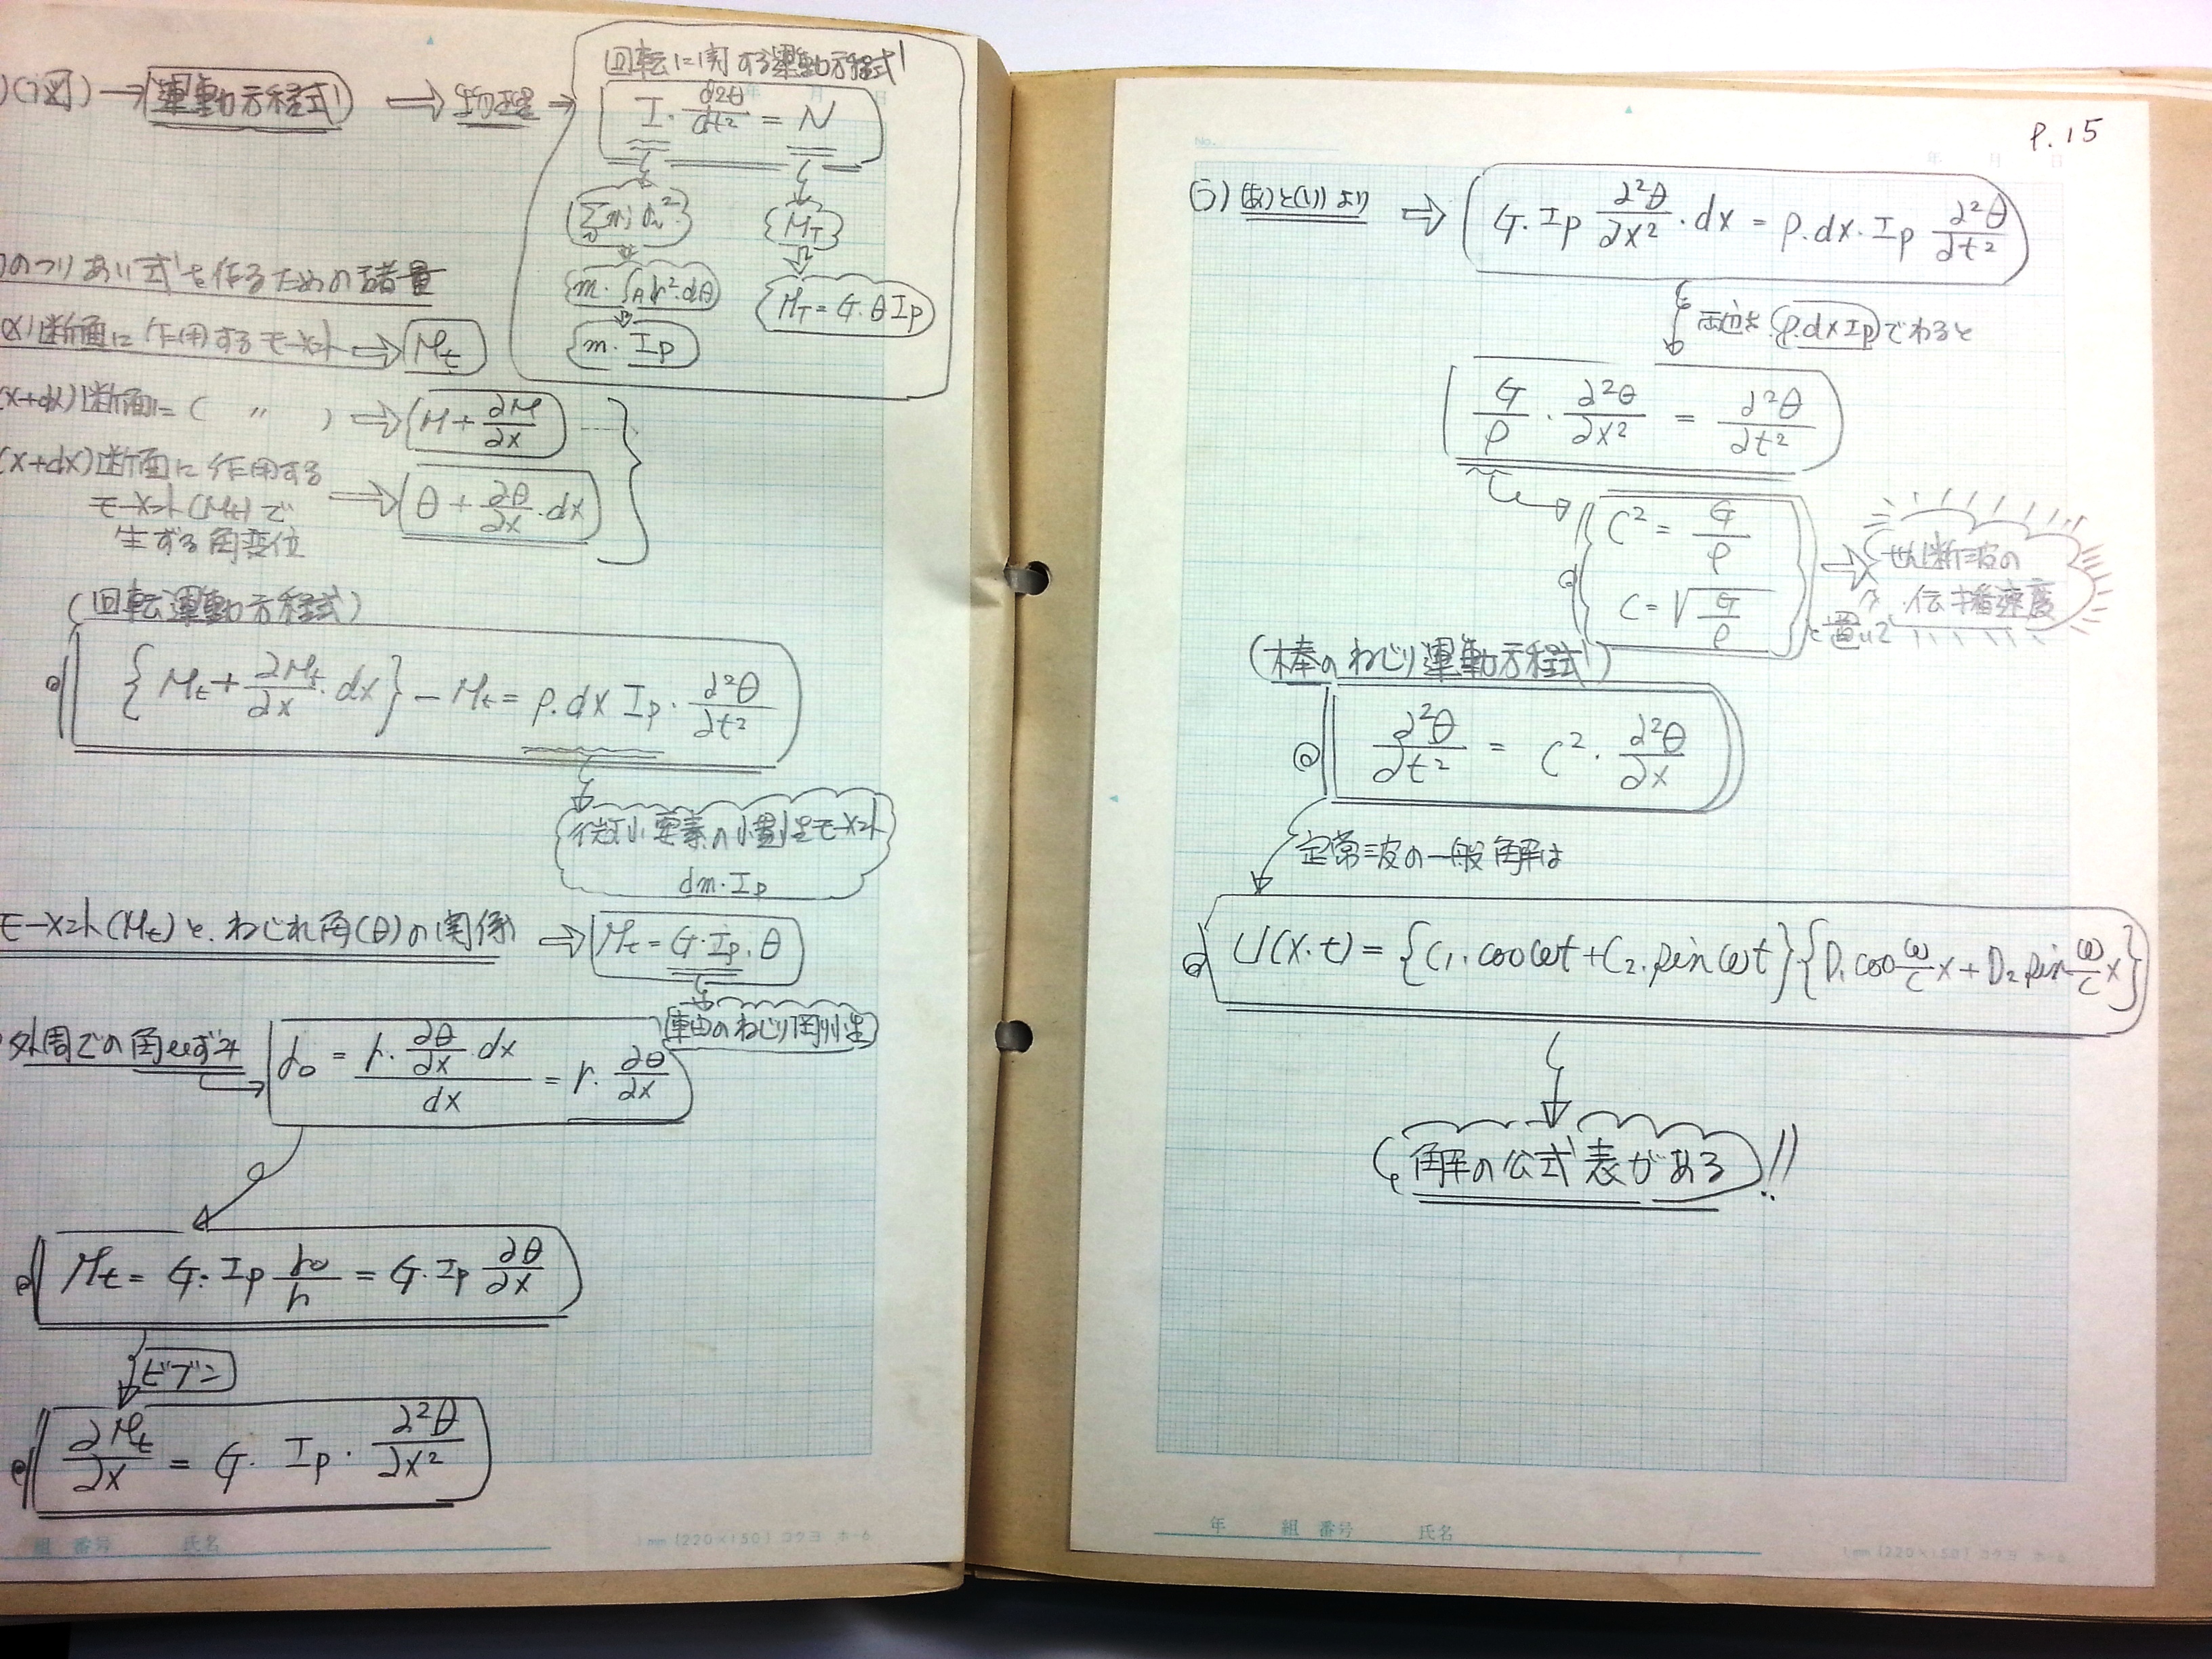 )(i図) → 運動方程式 ⇒ 物理 →
回転に関する運動方程式
I・d2θ/dt² = N
Σmi ri²
m・∫A r²・dθ
m・Ip
{MT}
MT = G・θIp
のつりあい式を作るための諸量
(x)断面に作用するモーメント ⇒ Mt
(x+dx)断面に( 〃 ) ⇒ M + ∂M/∂x
(x+dx)断面に作用する
モーメント(Mt)で
生ずる角変位
⇒ θ + ∂θ/∂x・dx
(回転運動方程式)
{Mt + ∂Mt/∂x・dx} - Mt = ρ・dx Ip・∂²θ/∂t²
微小要素の慣性モーメント
dm・Ip
モーメント(Mt)と、ねじれ角(θ)の関係 ⇒ Mt = G・Ip・θ
軸のねじり剛性
外周での角ひずみ → γo = r・∂θ/∂x・dx / dx = r・∂θ/∂x
Mt = G・Ip γo/r = G・Ip ∂θ/∂x
ビブン
∂Mt/∂x = G・Ip・∂²θ/∂x²
組 番号 氏名
1mm (220×150) コクヨ ホ-6
P.15
No.
年 月 日
う) (あ)と(い)より ⇒ G・Ip ∂²θ/∂x²・dx = ρ・dx・Ip ∂²θ/∂t²
両辺を(ρ・dxIp)でわると
G/ρ・∂²θ/∂x² = ∂²θ/∂t²
C² = G/ρ
C = √G/ρ
と置いて
せん断波の
伝播速度
(棒のねじり運動方程式)
∂²θ/∂t² = C²・∂²θ/∂x
定常波の一般解は
U(x・t) = {C1・cosωt + C2・sinωt}{D1 cos ω/c x + D2 sin ω/c x}
解の公式表がある!!
年 組 番号 氏名
1mm (220×150) コクヨ ホ-6